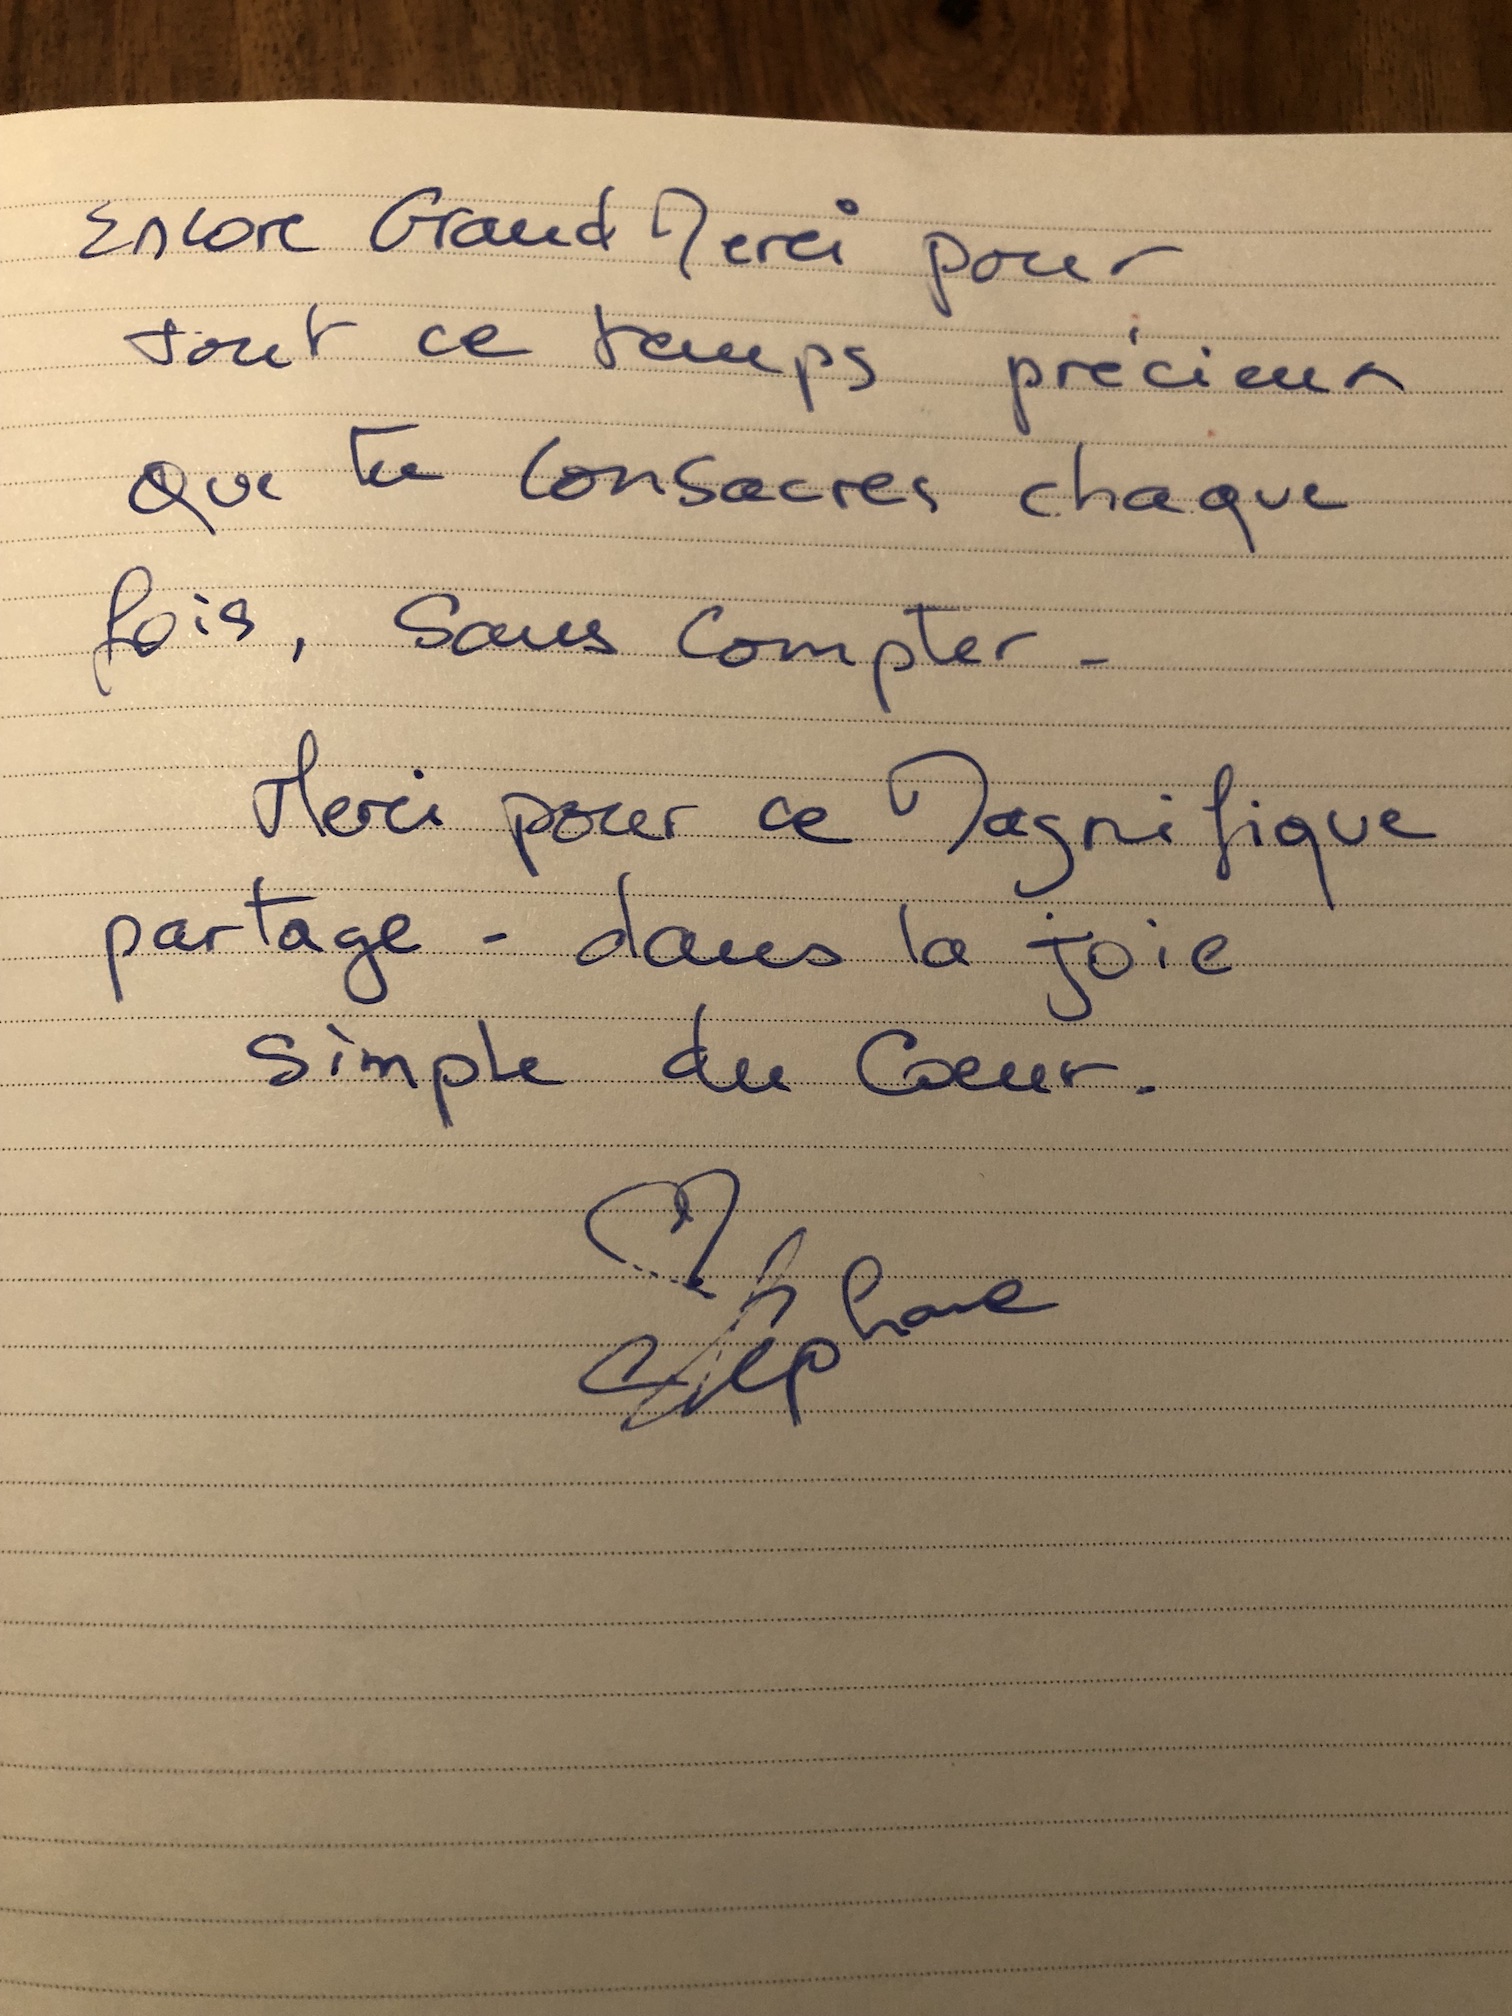 Encore Grand Merci pour
tout ce temps précieux
que tu consacres chaque
fois, sans compter -
Merci pour ce Magnifique
partage - dans la joie
simple du Coeur.
Stéphane